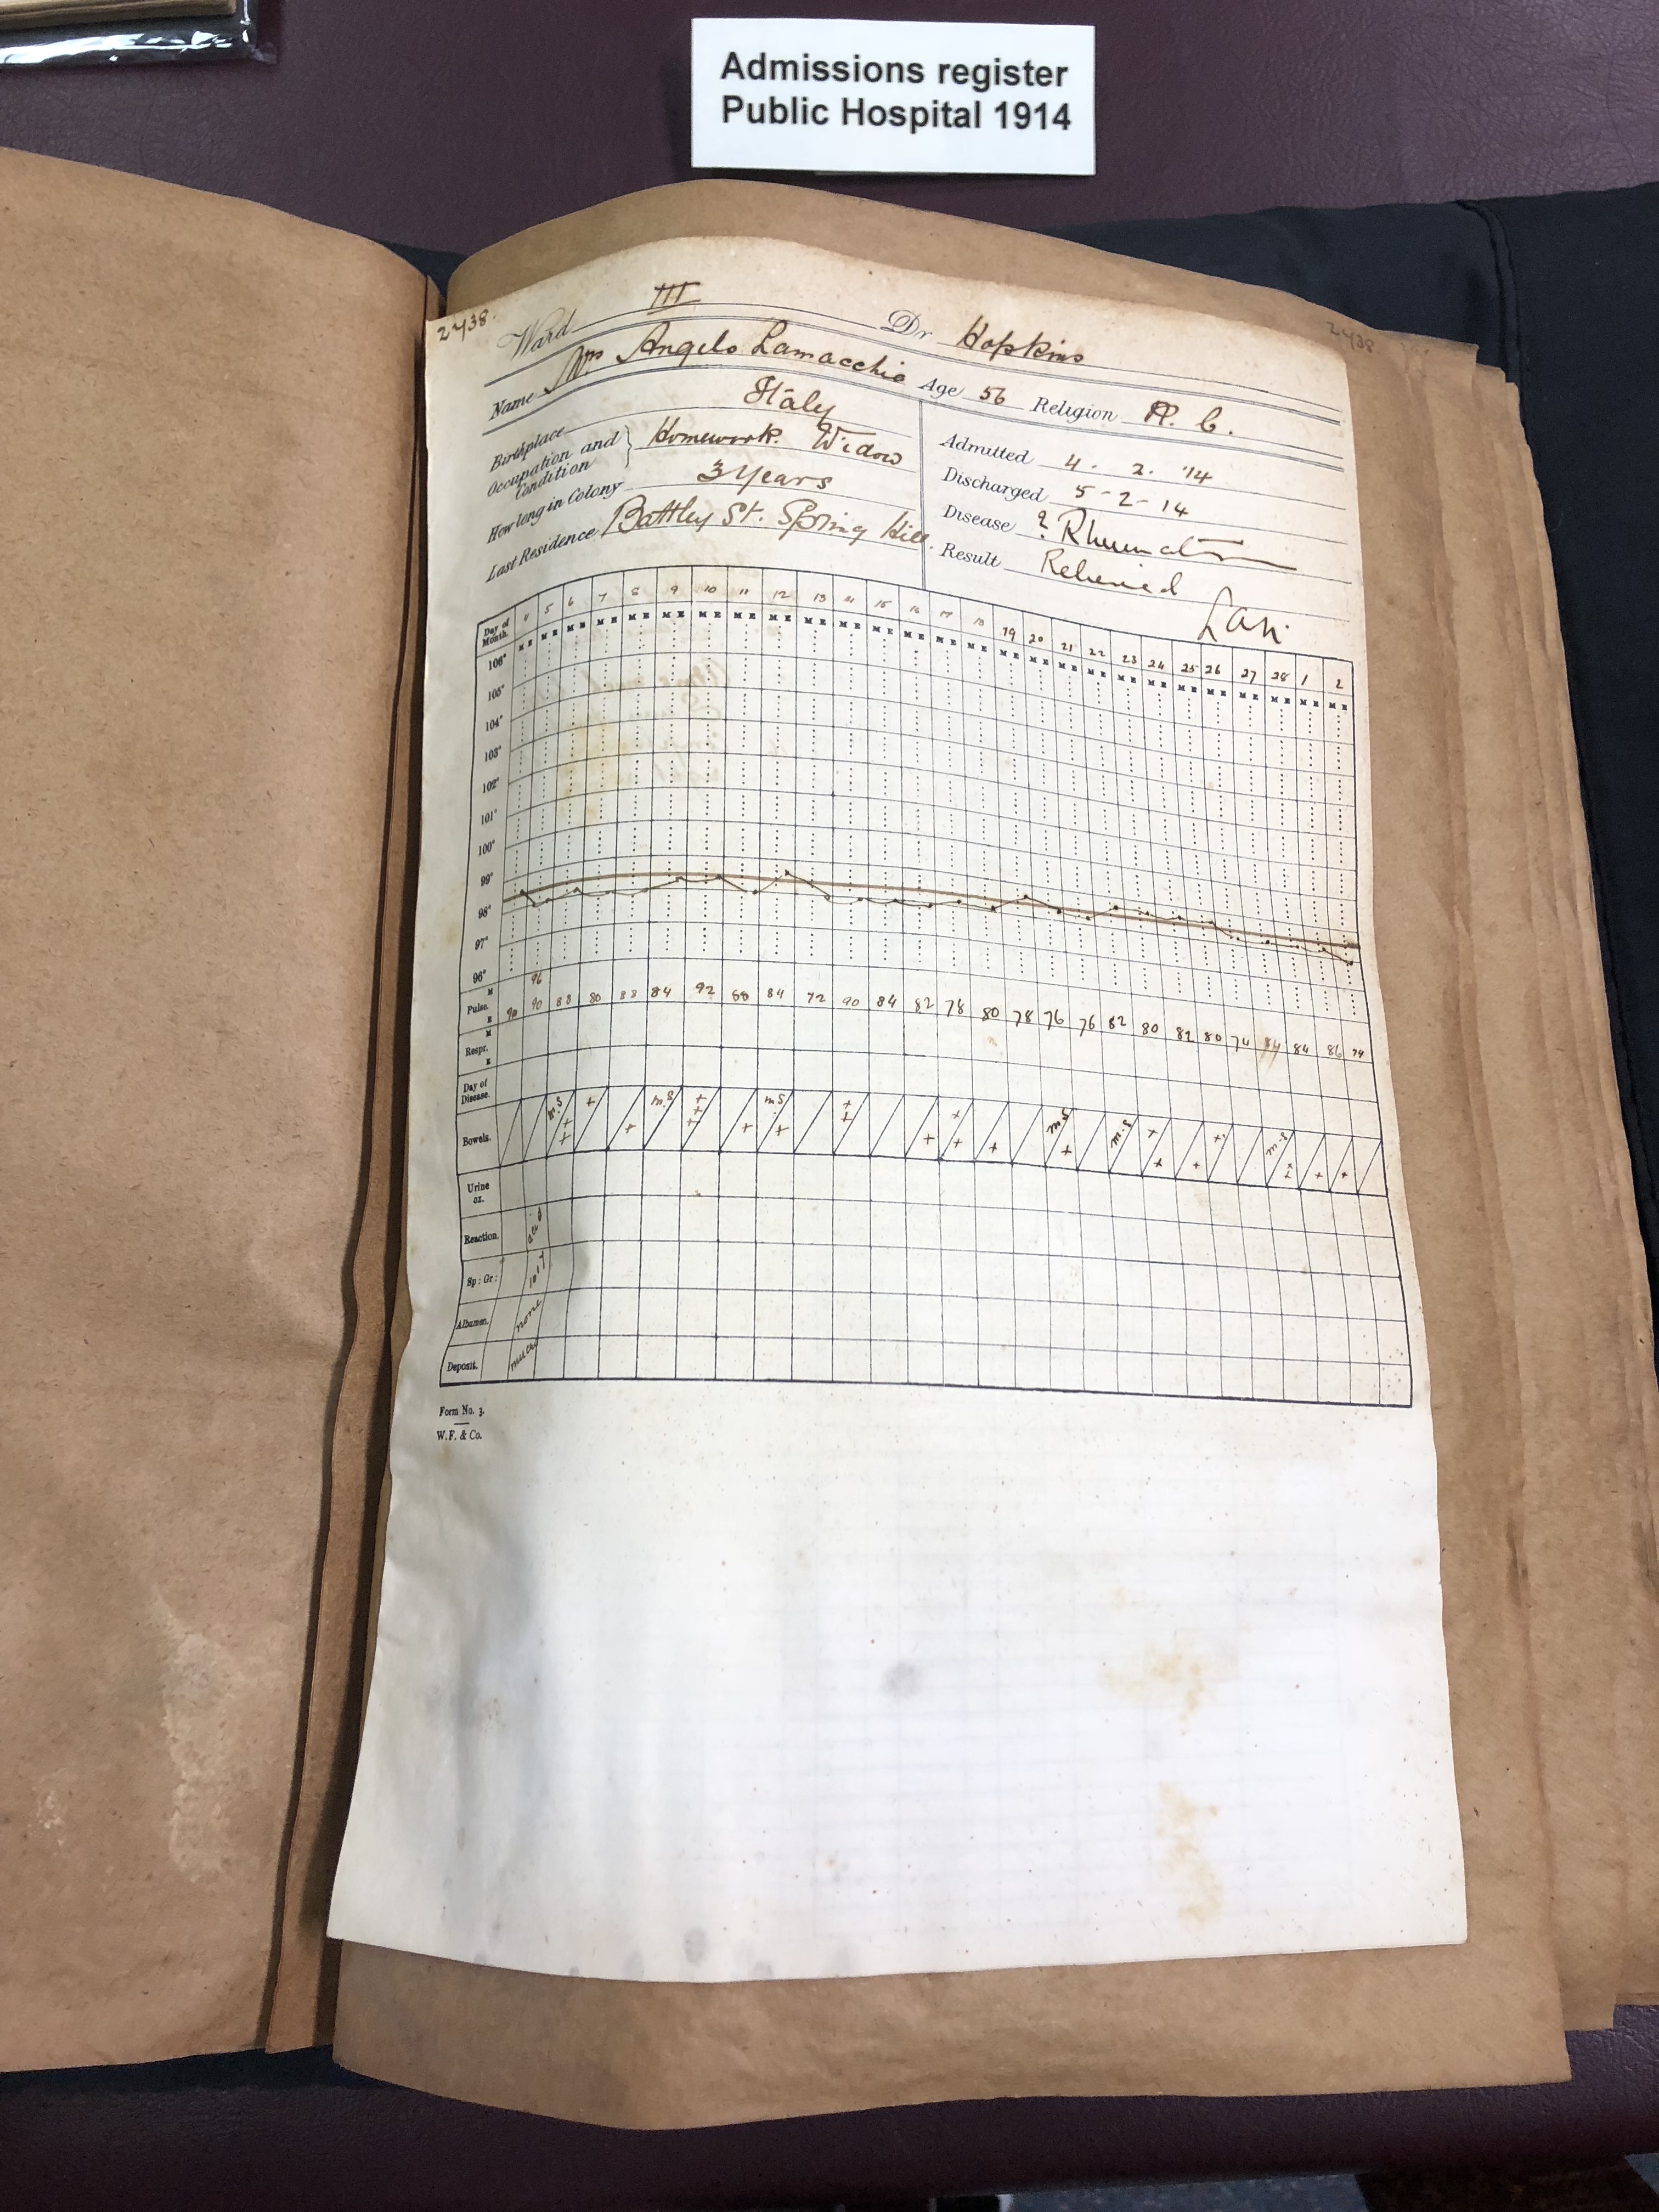 Admissions register
Public Hospital 1914
2438.
2438
Ward III Dr Hopkins
Name Mrs Angelo Lamacchio Age 56 Religion R. C.
Birthplace Italy
Occupation and Condition } Homework. Widow
How long in Colony 3 Years
Last Residence Battley St. Spring Hill.
Admitted 4. 2. '14
Discharged 5-2-14
Disease ?
Result Relieved
Day of Month. 4 5 6 7 8 9 10 11 12 13 14 15 16 17 18 19 20 21 22 23 24 25 26 27 28 1 2
M E M E M E M E M E M E M E M E M E M E M E M E M E M E M E M E M E M E M E M E M E M E M E M E M E M E M E
106°
105°
104°
103°
102°
101°
100°
99°
98°
97°
96°
M 96
Pulse. 90 90 88 80 88 84 92 88 84 72 90 84 82 78 80 78 76 76 82 80 82 80 74 84 84 86 74
E
M
Respr.
E
Day of Disease.
Bowels. m.s + + + + m.s + + + + m.s + + + + + + + m.s + m.s + + + + m.s + + + +
Urine oz.
Reaction. acid
Sp: Gr: 1017
Albumen. none
Deposit.
Form No. 3.
W.F. & Co.